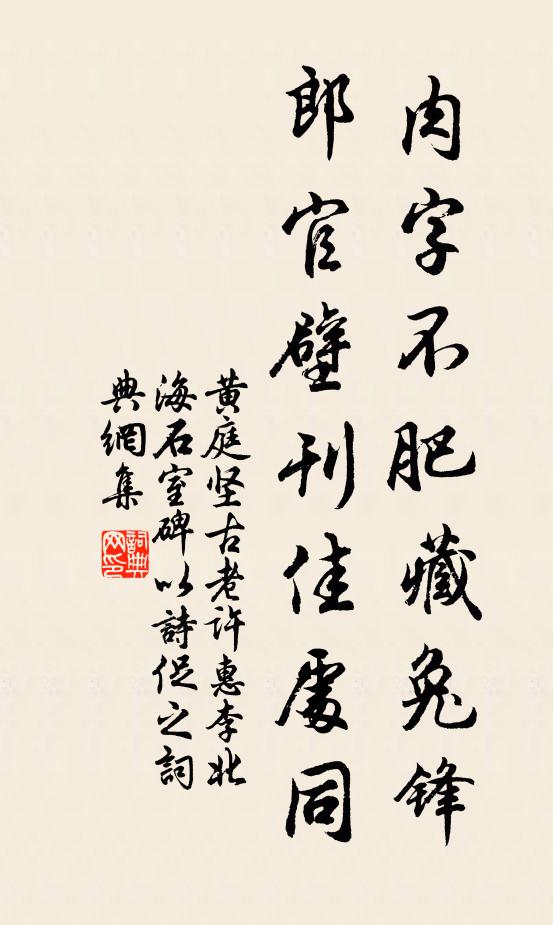 肉字不肥藏兔鋒
郎官壁刊佳處同
黄庭坚古老許惠李北
海石室碑以詩促之詞
典網集
詞典
网印